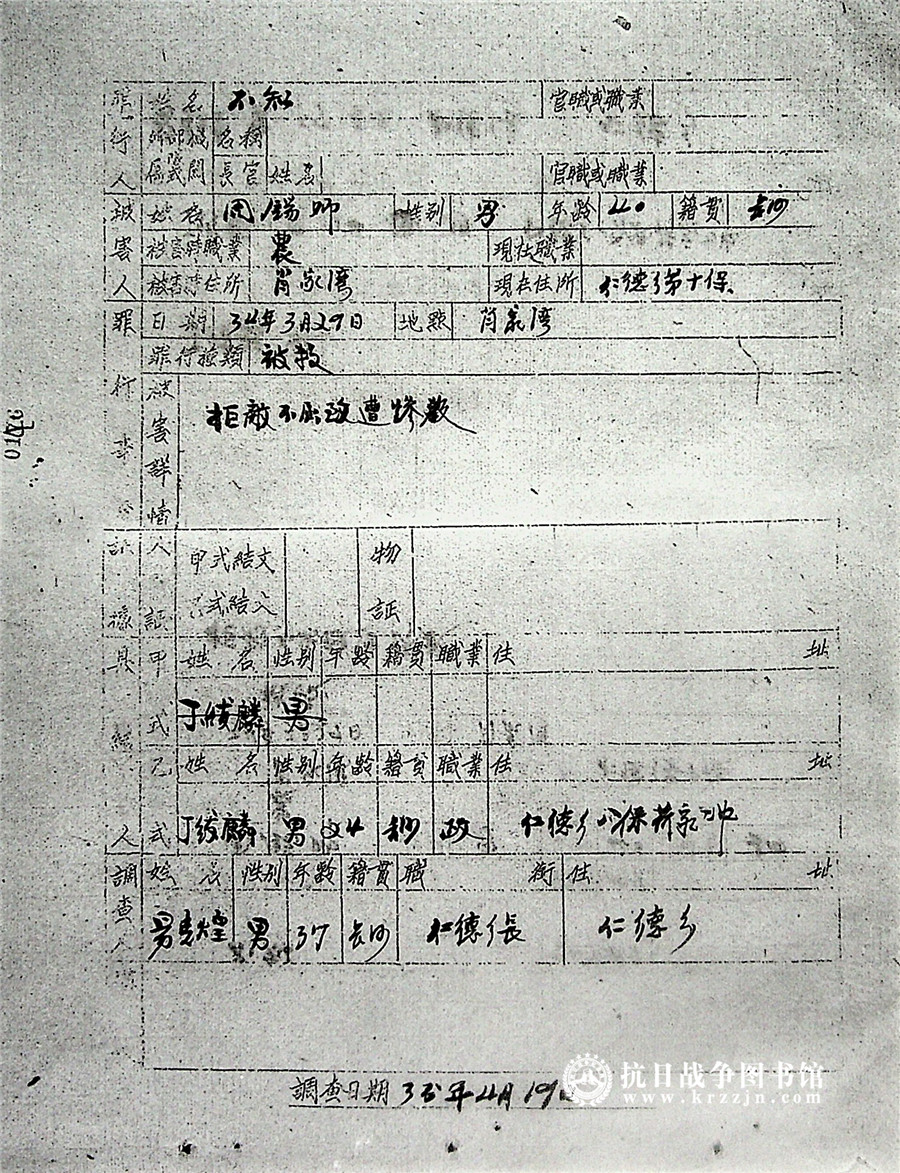 罪行人 姓名 不知 官職或職業
所部機 名稱
屬或關 長官姓名 官職或職業
被害人 姓名 周 師 性别 男 年齡 40 籍貫 長沙
被害時職業 農 現在職業
被害時住所 肖家湾 現在住所 仁德乡第十保
罪行事 日期 34年3月29日 地點 肖家湾
罪行種類 被殺
被害詳情 拒敵不屈致遭慘殺
証據 人証 甲式結文 物証
乙式結文
具結人 甲式 姓名 性别 年齡 籍貫 職業 住址
丁綾麟 男
乙式 姓名 性别 年齡 籍貫 職業 住址
丁綾麟 男 24 長沙 政 仁德乡八保
調查人 姓名 性别 年齡 籍貫 職銜 住址
煌 男 37 長沙 仁德乡長 仁德乡
調查日期 35年4月19日
010
抗日战争图书馆
www.krzzjn.com